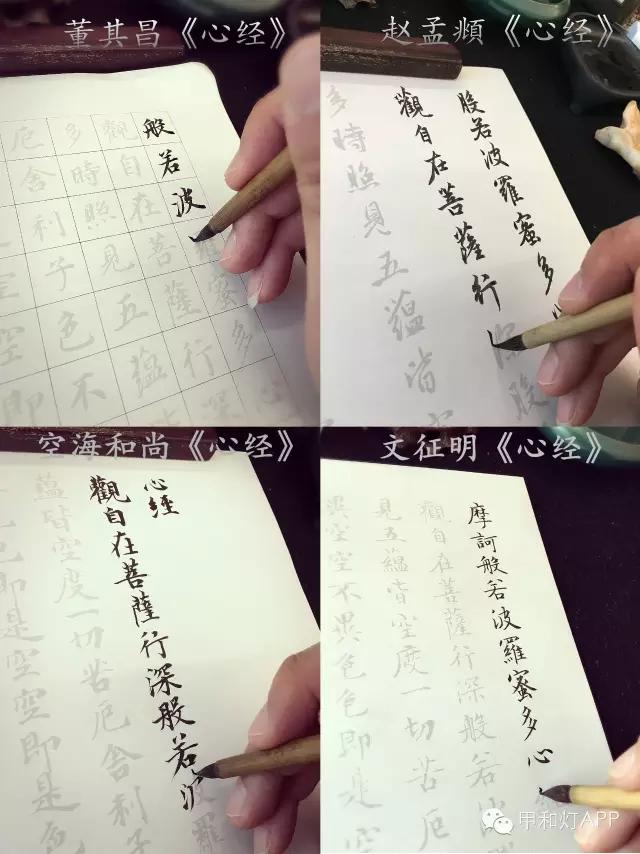 董其昌《心经》
般若波羅蜜多心
觀自在菩薩行深
多時照見五蘊皆
厄舍利子色不
空即
赵孟頫《心经》
般若波羅蜜多
觀自在菩薩行深般
多時照見五蘊皆空
空海和尚《心经》
心經
觀自在菩薩行深般若波羅
蘊皆空度一切苦厄舍利子
色即是空空即是色
文征明《心经》
摩訶般若波羅蜜多心
觀自在菩薩行深般若波
見五蘊皆空度一切苦厄
異空空不異色色即是空
甲和灯APP